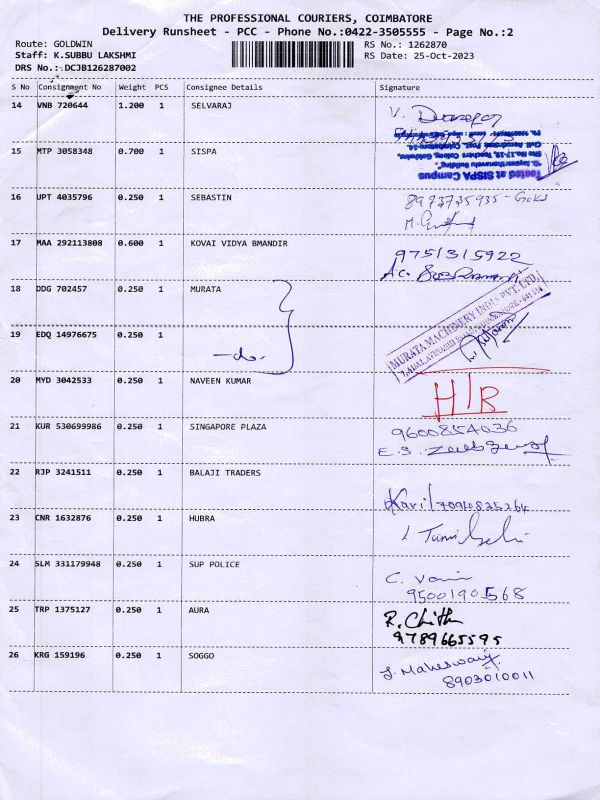 THE PROFESSIONAL COURIERS, COIMBATORE
Delivery Runsheet - PCC - Phone No.:0422-3505555 - Page No.:2
Route: GOLDWIN RS No.: 1262870
Staff: K.SUBBU LAKSHMI RS Date: 25-Oct-2023
DRS No.: DCJB126287002
S No Consignment No Weight PCS Consignee Details Signature
14 VNB 720644 1.200 1 SELVARAJ V.
15 MTP 3058348 0.700 1 SISPA
Tosted at SISPA Campus
16 UPT 4035796 0.250 1 SEBASTIN
17 MAA 292113808 0.600 1 KOVAI VIDYA BMANDIR 9751315922
18 DDG 702457 0.250 1 MURATA
MURATA MACHINERY INDIA PVT. LTD.
19 EDQ 14976675 0.250 1
-do-
20 MYD 3042533 0.250 1 NAVEEN KUMAR H/R
21 KUR 530699986 0.250 1 SINGAPORE PLAZA 9600854036
E.S.
22 RJP 3241511 0.250 1 BALAJI TRADERS
Kavi/7094835264
23 CNR 1632876 0.250 1 HUBRA
24 SLM 331179948 0.250 1 SUP POLICE C.
9500190568
25 TRP 1375127 0.250 1 AURA R. Chitha
9789665595
26 KRG 159196 0.250 1 SOGGO J. Maheswari
8903010011